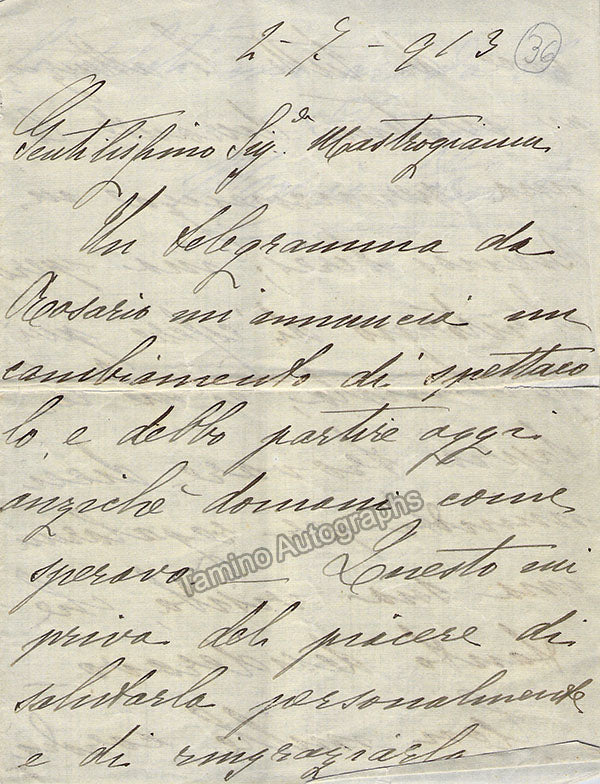 2-7-913 36
Gentilissimo Sig. Mastrogianni
Un telegramma da
Rosario mi annuncia un
cambiamento di spettaco
lo, e debbo partire oggi
anzichè domani come
speravo — Questo mi
priva del piacere di
salutarla personalmente
e di ringraziarla
Tamino Autographs